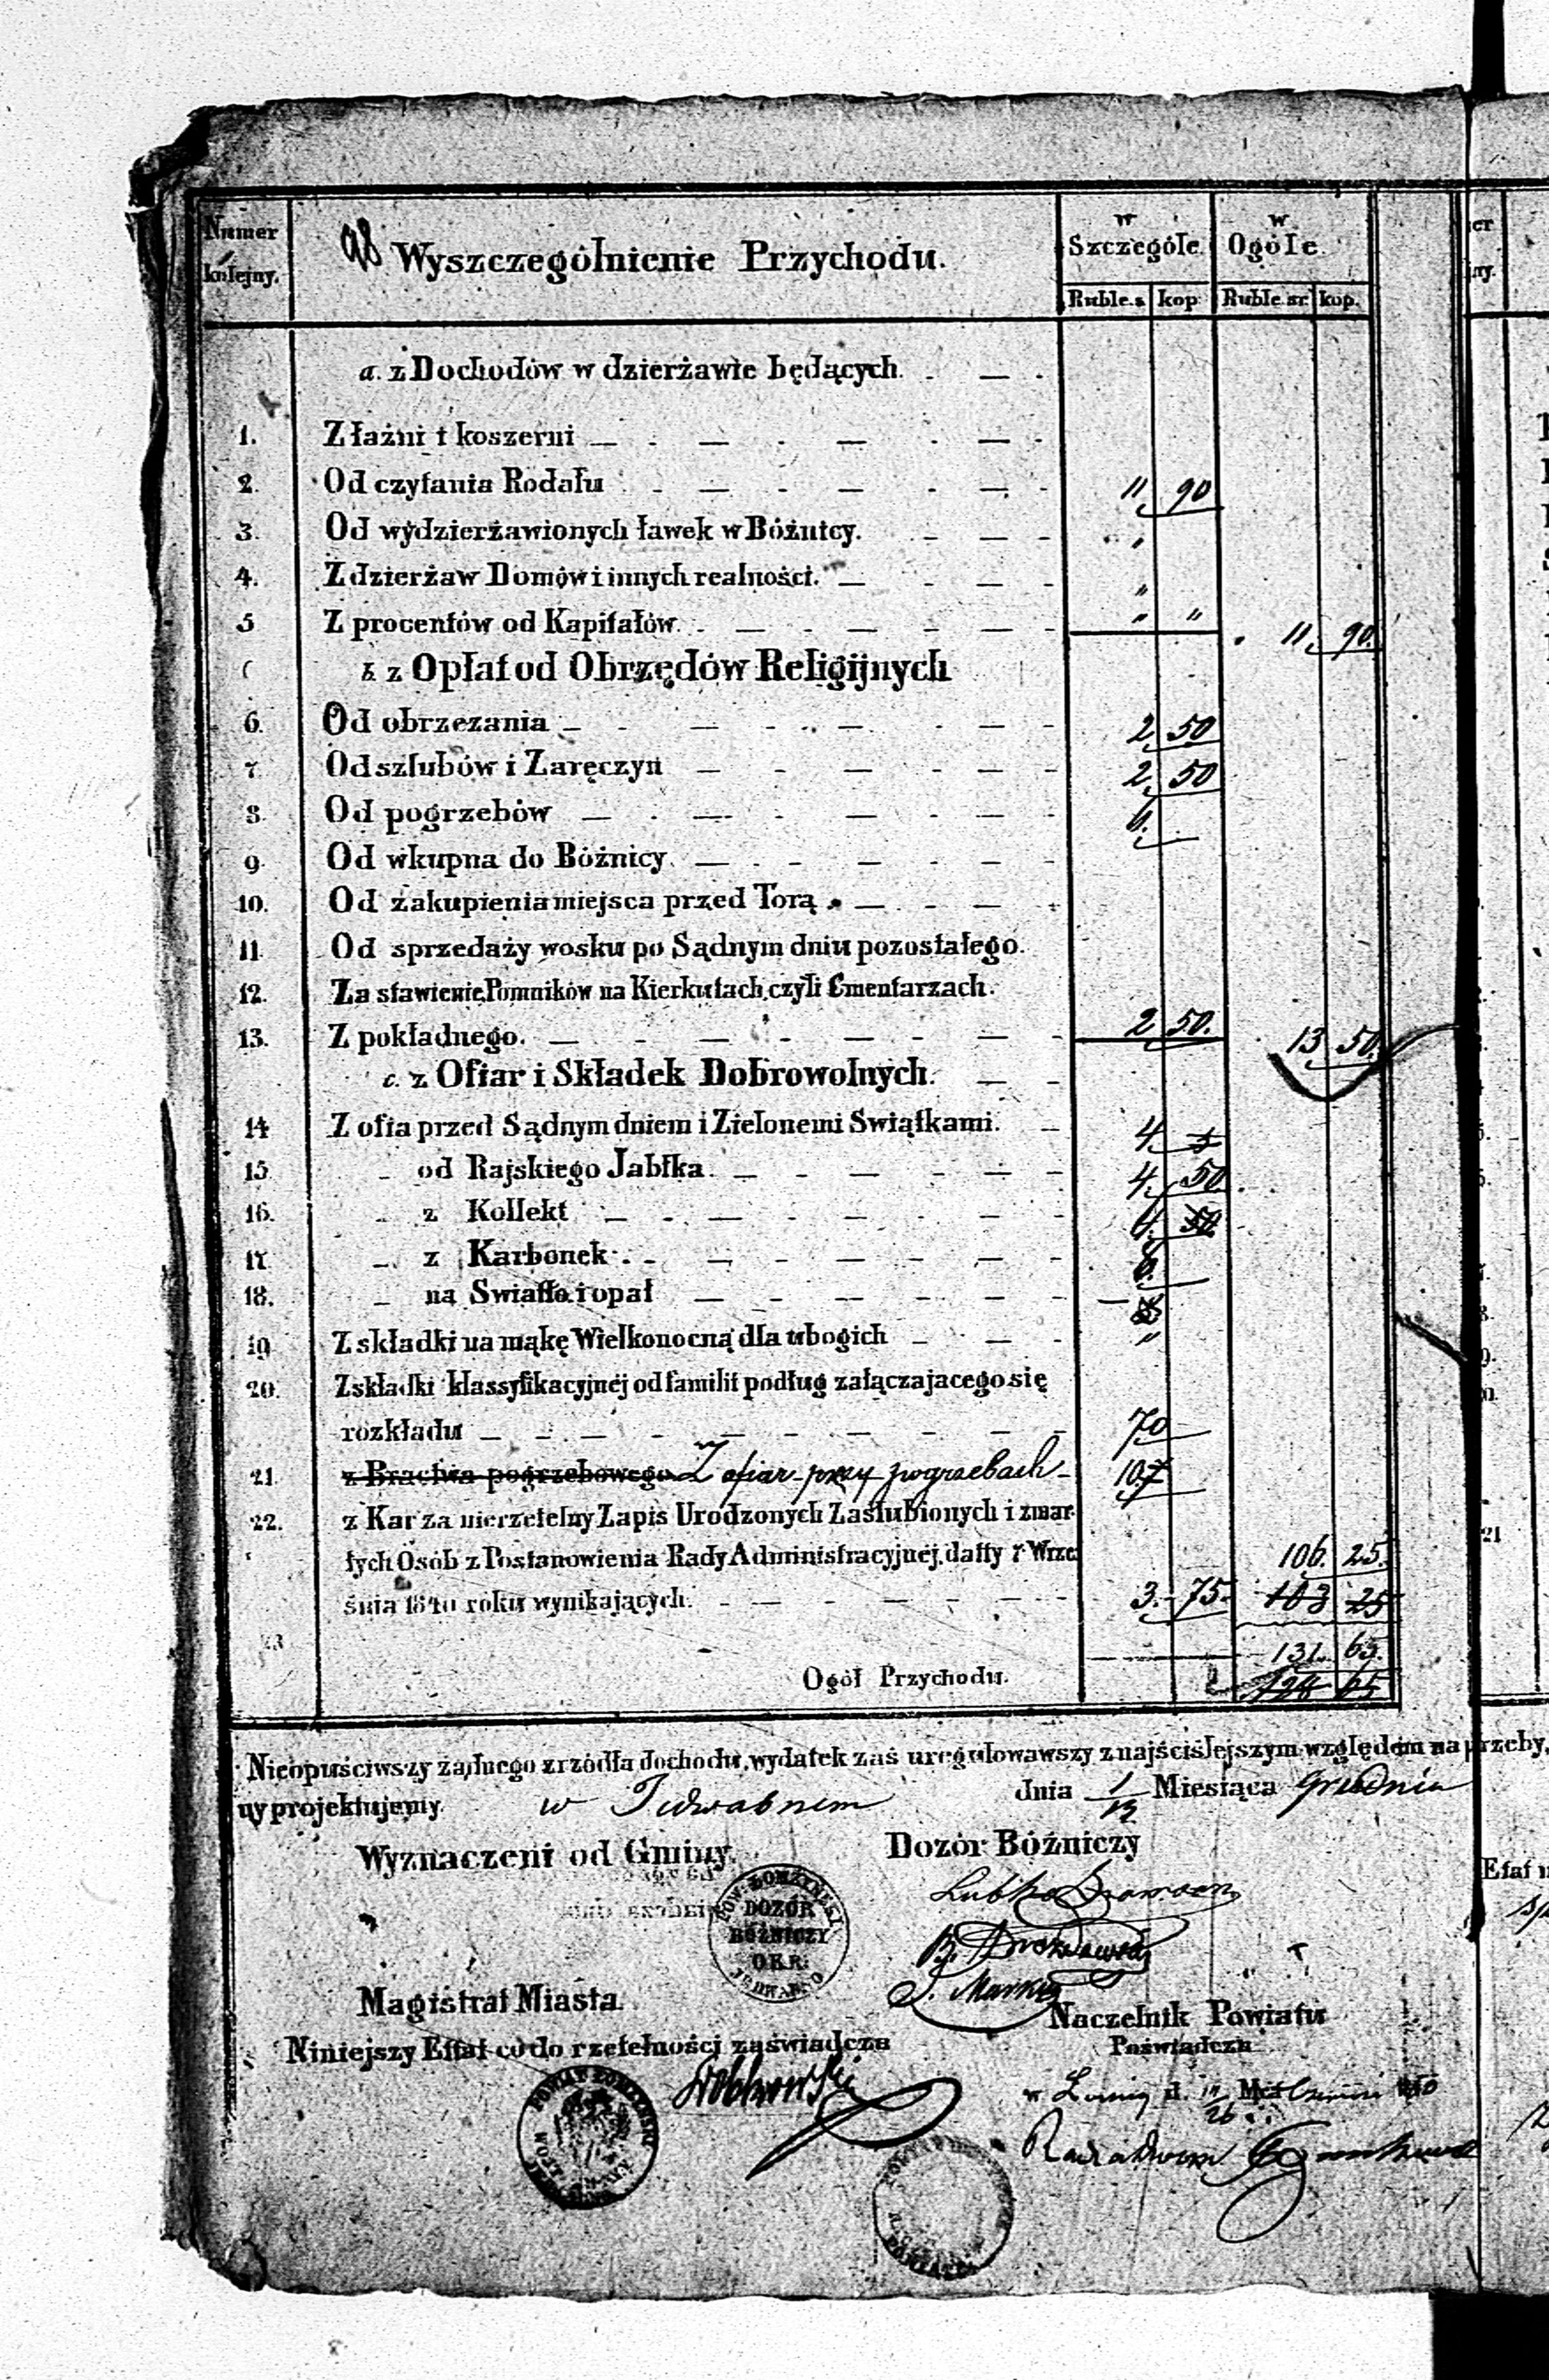 Numer kolejny.
98 Wyszczególnienie Przychodu.
w Szczególe. w Ogóle.
Ruble.s kop. Ruble sr. kop.
a. z Dochodów w dzierżawie będących.
1. Z łaźni i koszerni
2. Od czytania Rodału 11 90
3. Od wydzierżawionych ławek w Bóźnicy. "
4. Z dzierżaw Domów i innych realności. "
5 Z procentów od Kapitałów " " 11 90.
b. z Opłat od Obrzędów Religijnych
6. Od obrzezania 2 50
7 Od szlubów i Zaręczyn 2 50
8. Od pogrzebów 6.
9. Od wkupna do Bóżnicy.
10. Od zakupienia miejsca przed Torą
11. Od sprzedaży wosku po Sądnym dniu pozostałego.
12. Za stawienie Pomników na Kierkutach, czyli Cmentarzach.
13. Z pokładnego. 2 50. 13 50.
c. z Ofiar i Składek Dobrowolnych.
14 Z ofia przed Sądnym dniem i Zielonemi Swiątkami. 4.
15 od Rajskiego Jabłka. 4. 50.
16. z Kollekt 50
17 z Karbonek.
18. na Swiatło i opał
19 Z składki na mąkę Wielkonocną dla ubogich "
20. Z składki klassyfikacyjnéj od familii podług załączajacego się
rozkładu 70
21. z Bractwa pogrzebowego Z ofiar przy pogrzebach 10.
22. z Kar za nierzetelny Zapis Urodzonych Zaślubionych i zmar-
łych Osób z Postanowienia Rady Administracyjnéj datty 7 Wrze 106. 25.
śnia 1840 roku wynikających. 3. 75. 103 25
23 131. 65.
Ogół Przychodu. 128 65
Nieopuściwszy żadnego zrzódła dochodu, wydatek zaś uregulowawszy z najściślejszym względem na potrzeby,
ny projektujemy. w Jedwabnem dnia 1/13 Miesiąca Grudnia
Wyznaczeni od Gminy. Dozór Bóźniczy
POW: ŁOMŻYŃSKI
DOZÓR
BÓŻNICZY
OKR:
JEDWABNO
S. Markus
Magistrat Miasta. Naczelnik Powiatu
Niniejszy Etat co do rzetelności zaświadcza Poświadcza
POWIAT ŁOMŻYŃSKI
w d. 26